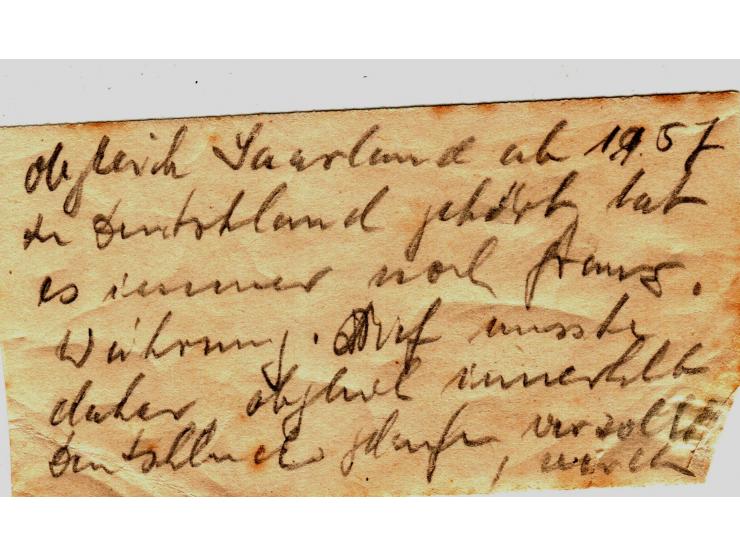 obgleich Saarland ab 1957
zu Deutschland gehört hat
es immer noch franz.
Währung. Brief musste
daher, obgleich innerhalb
Deutschlands gelaufen verzollt
, werden